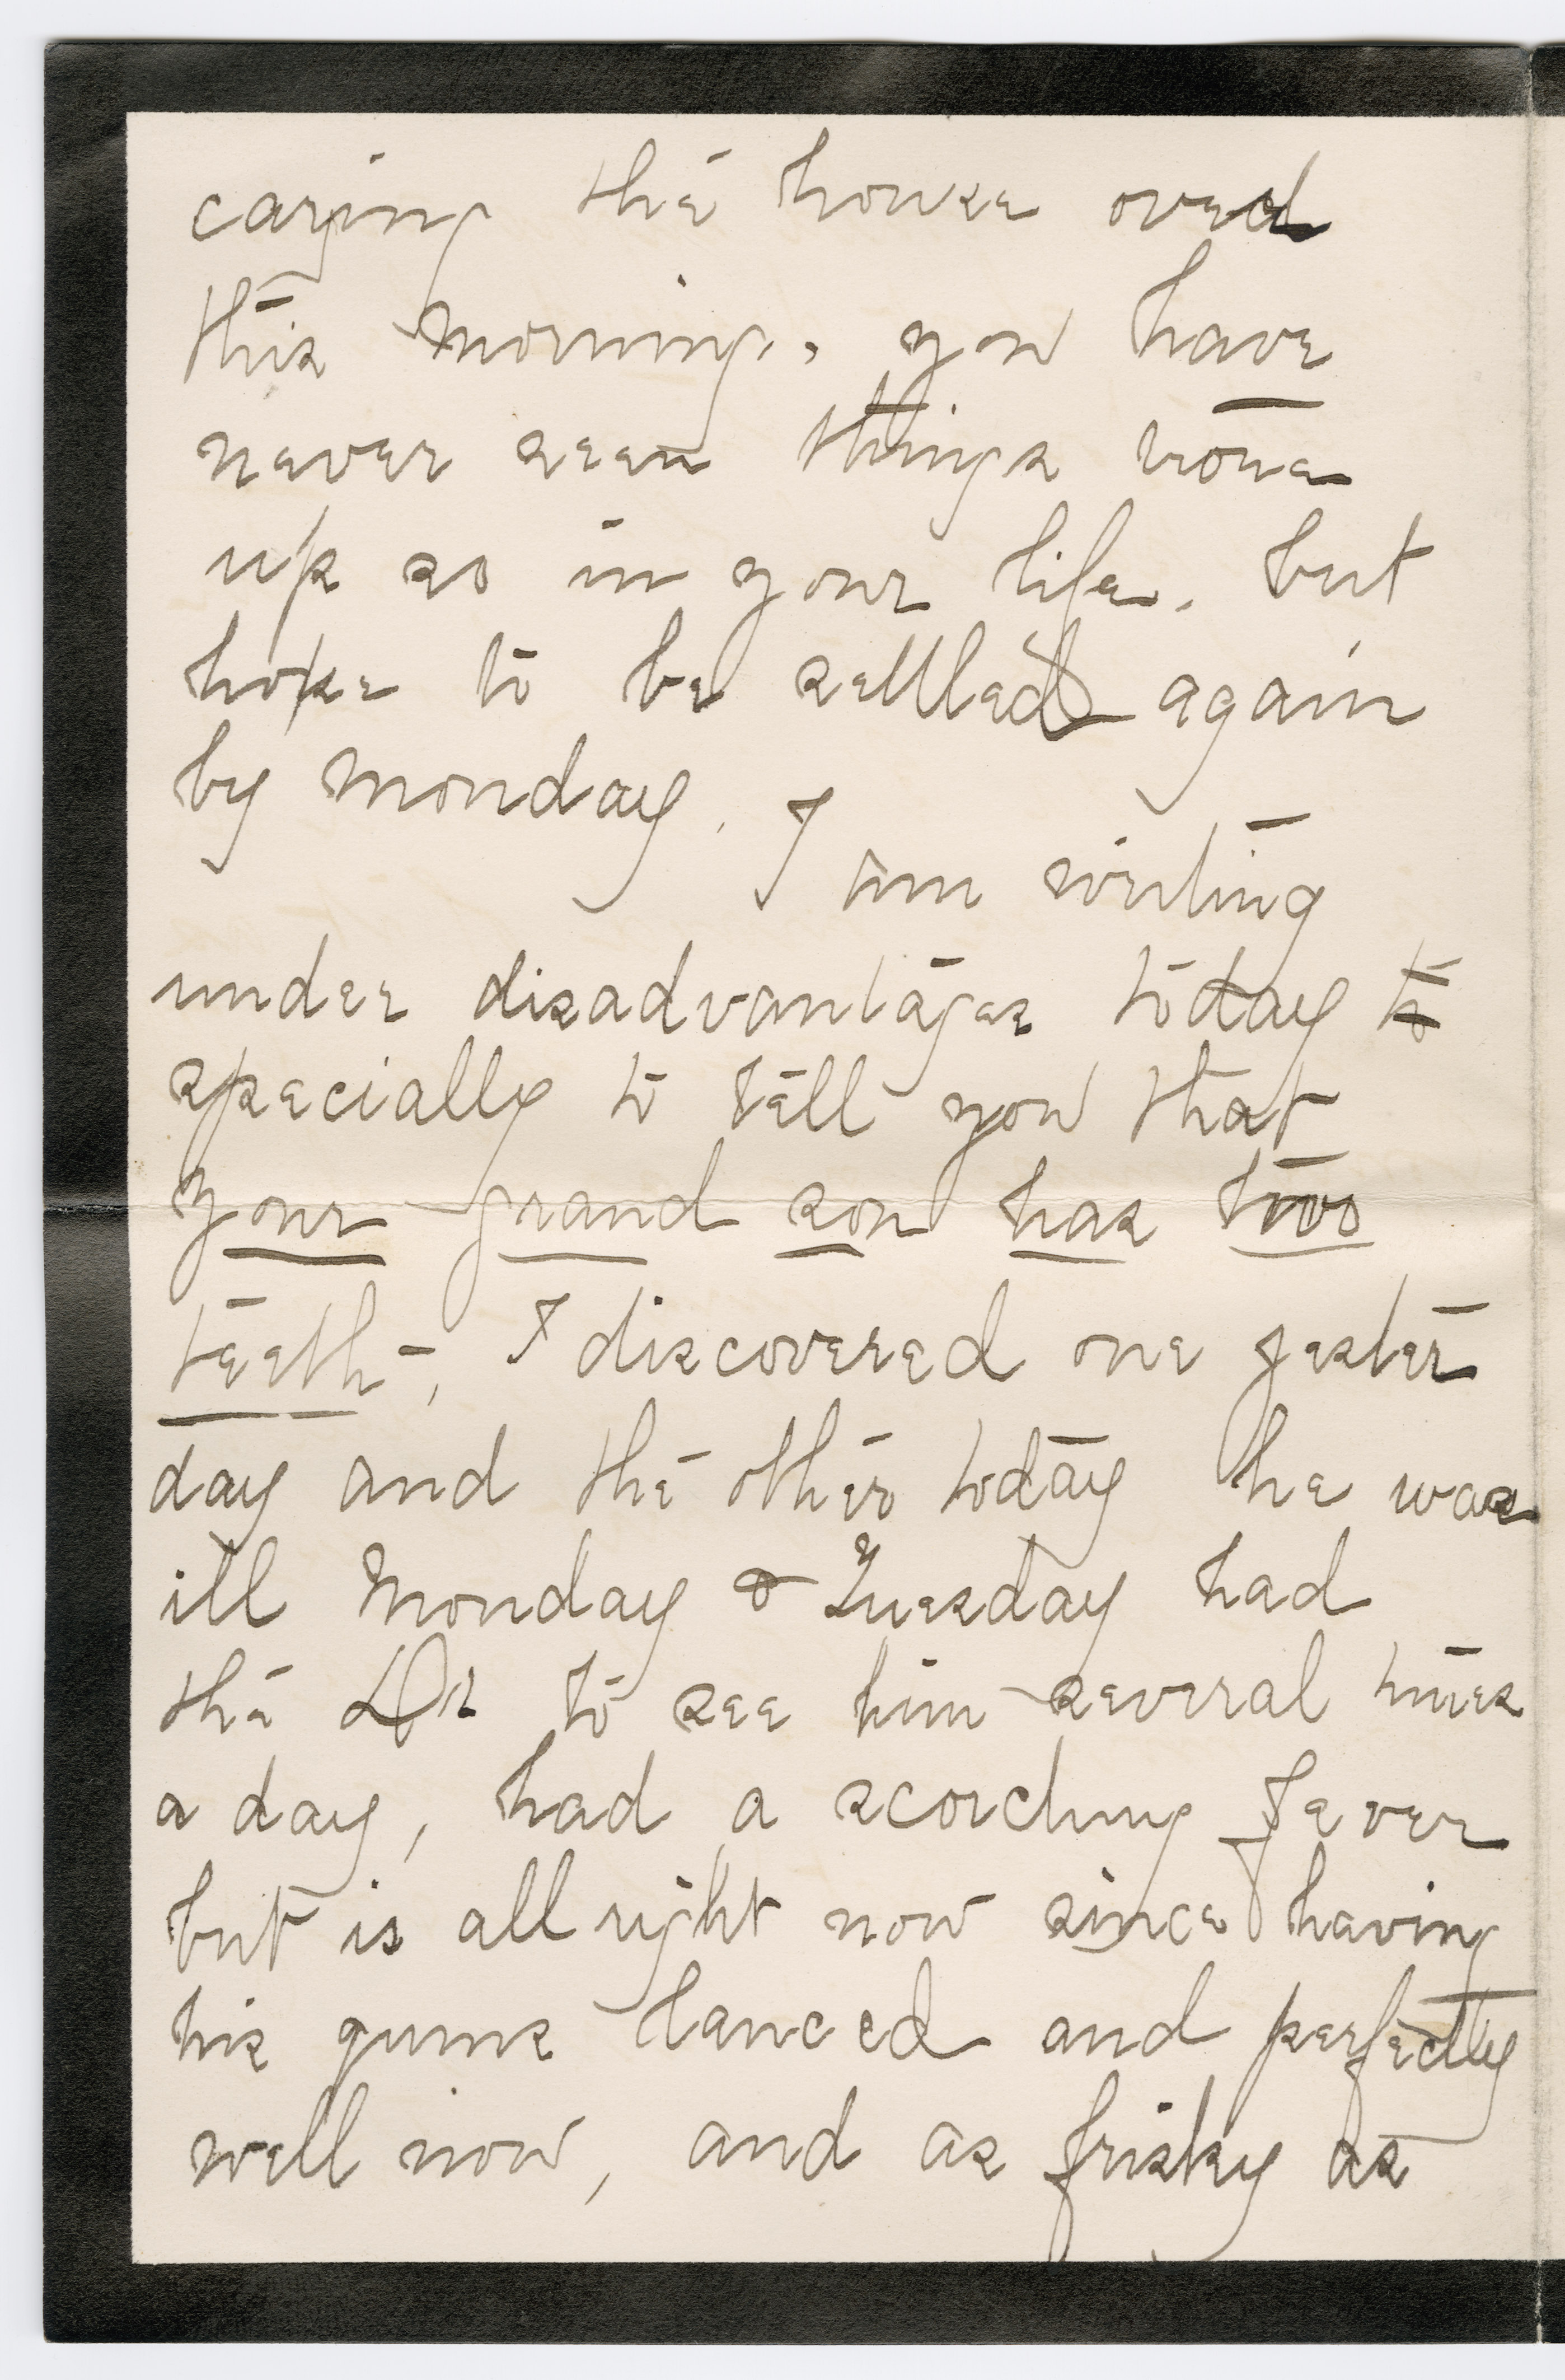 carying the house over
this morning. you have
never seen things
up so in your life. but
hope to be settled again
by monday. I am writing
under disadvantages today to
specially to tell you that
your grand son has two
teeth -, I discovered one yester
day and the other today he was
ill Monday & Tuesday had
the Dr to see him several times
a day, had a scorching fever
but is all right now since having
his gums lanced and perfectly
well now, and as frisky as